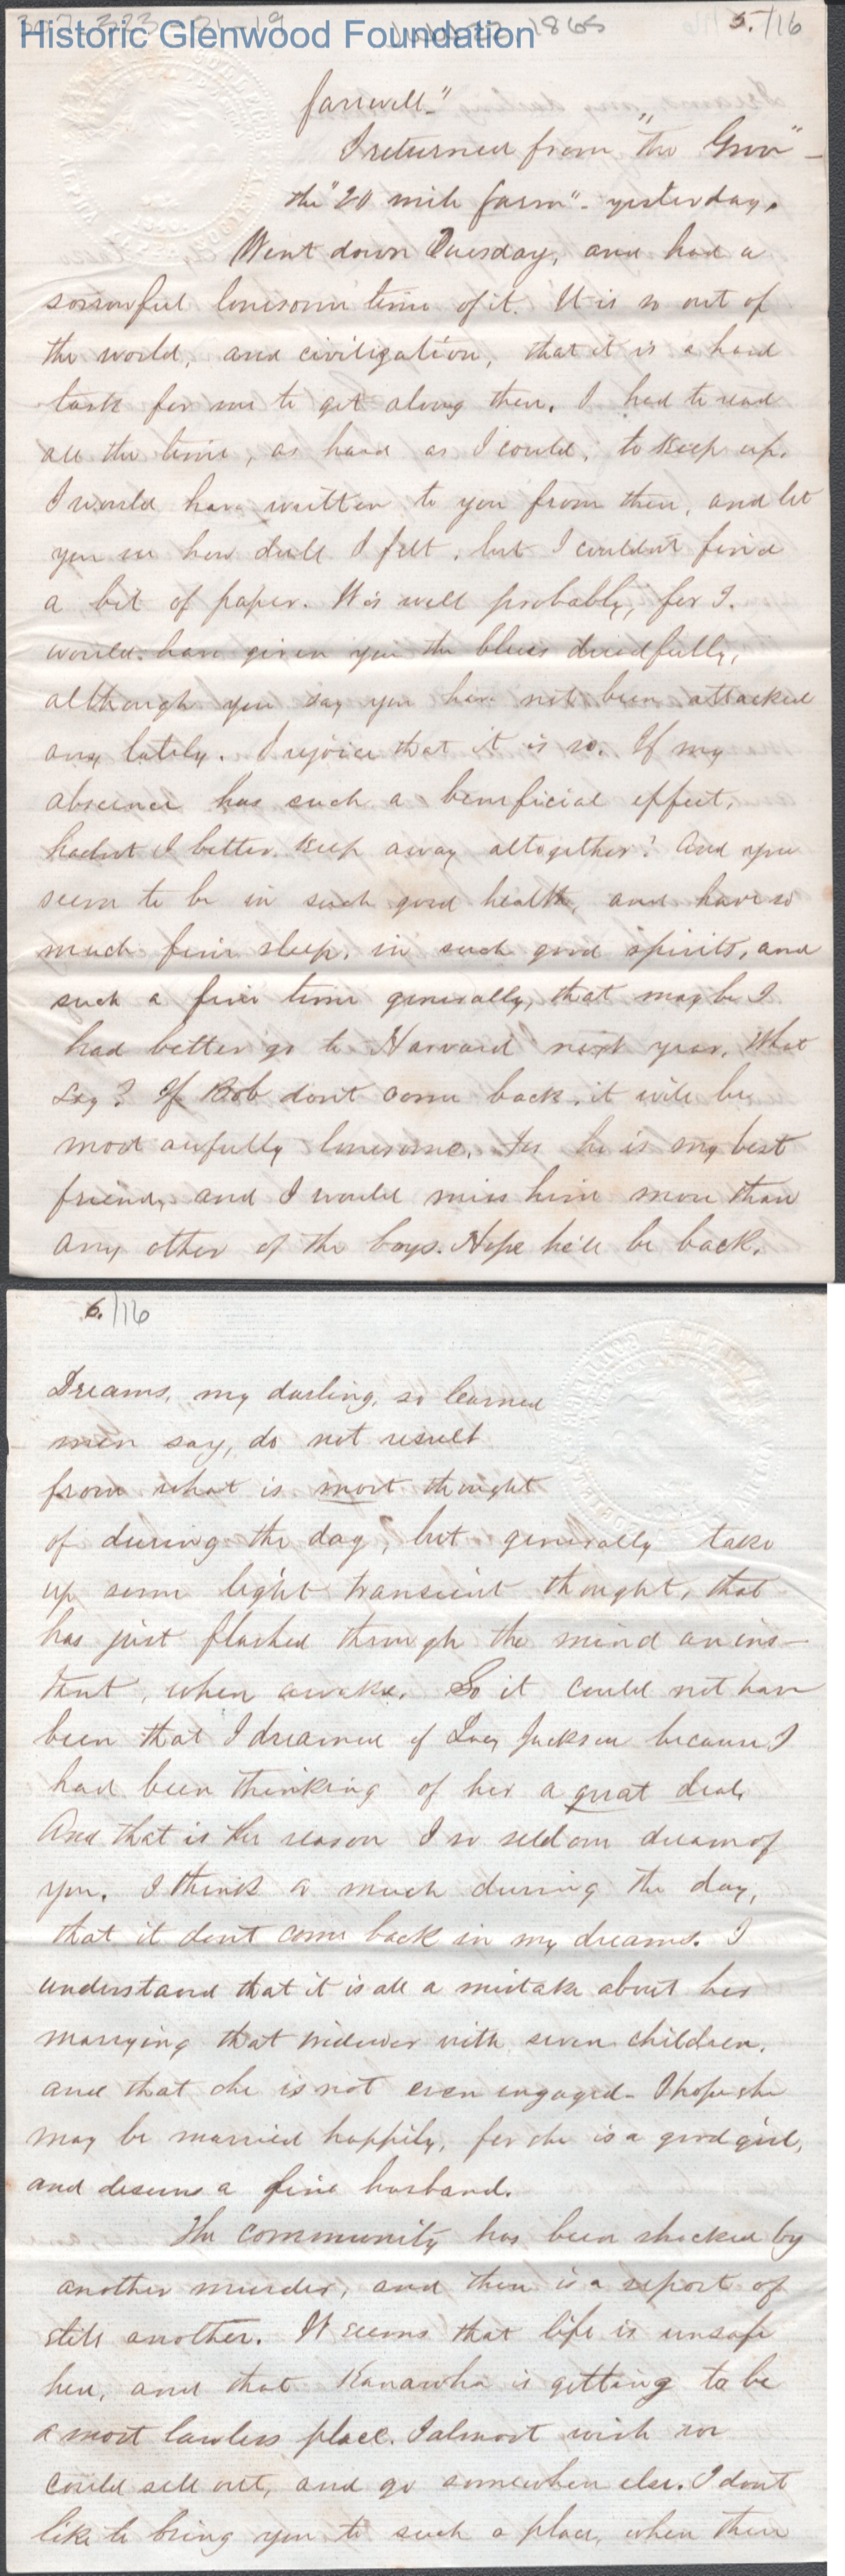 Historic Glenwood Foundation
1865
5./16
farewell"
I returned from "the Grove" –
the "20 mile farm" - yesterday.
Went down Tuesday, and had a
sorrowful lonesome time of it. It is so out of
the world, and civilization, that it is a hard
task for me to get along there. I had to read
all the time, as hard as I could, to keep up.
I would have written to you from there, and let
you see how dull I felt, but I couldn't find
a bit of paper. It's well probably, for I
would have given you the blues dreadfully,
although you say you have not been attacked
any lately. I rejoice that it is so. If my
absence has such a beneficial effect,
hadn't I better keep away altogether? And you
seem to be in such good health, and have so
much fine sleep, in such good spirits, and
such a fine time generally, that maybe I
had better go to Harvard next year. What
say? If Bob dont come back, it will be
most awfully lonesome. Yes he is my best
friend, and I would miss him more than
any other of the boys. Hope he'll be back.
6./16
Dreams, my darling, so learned
men say, do not result
from what is most thought
of during the day, but generally take
up some light transient thought, that
has just flashed through the mind an ins-
tant, when awake. So it could not have
been that I dreamed of Lucy Jackson because I
had been thinking of her a great deal.
And that is the reason I so seldom dream of
you. I think so much during the day,
that it dont come back in my dreams. I
understand that it is all a mistake about her
marrying that widower with seven children,
and that she is not even engaged - I hope she
may be married happily, for she is a good girl,
and deserves a fine husband.
The community has been shocked by
another murder, and there is a report of
still another. It seems that life is unsafe
here, and that Kanawha is getting to be
a most lawless place. I almost wish we
could sell out, and go somewhere else. I dont
like to bring you to such a place, when there